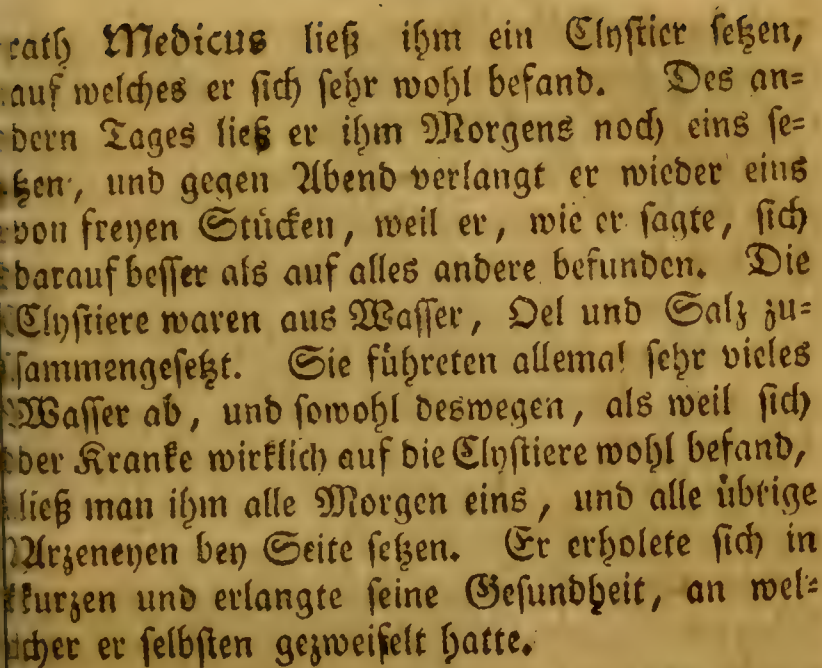 rath Medicus ließ ihm ein Clystier setzen,
auf welches er sich sehr wohl befand. Des an=
dern Tages ließ er ihm Morgens noch eins se=
tzen, und gegen Abend verlangt er wieder eins
von freyen Stücken, weil er, wie er sagte, sich
darauf besser als auf alles andere befunden. Die
Clystiere waren aus Wasser, Oel und Salz zu=
sammengesetzt. Sie führeten allemal sehr vieles
Wasser ab, und sowohl deswegen, als weil sich
der Kranke wirklich auf die Clystiere wohl befand,
ließ man ihm alle Morgen eins, und alle übrige
Arzeneyen bey Seite setzen. Er erholete sich in
kurzen und erlangte seine Gesundheit, an wel=
cher er selbsten gezweifelt hatte.